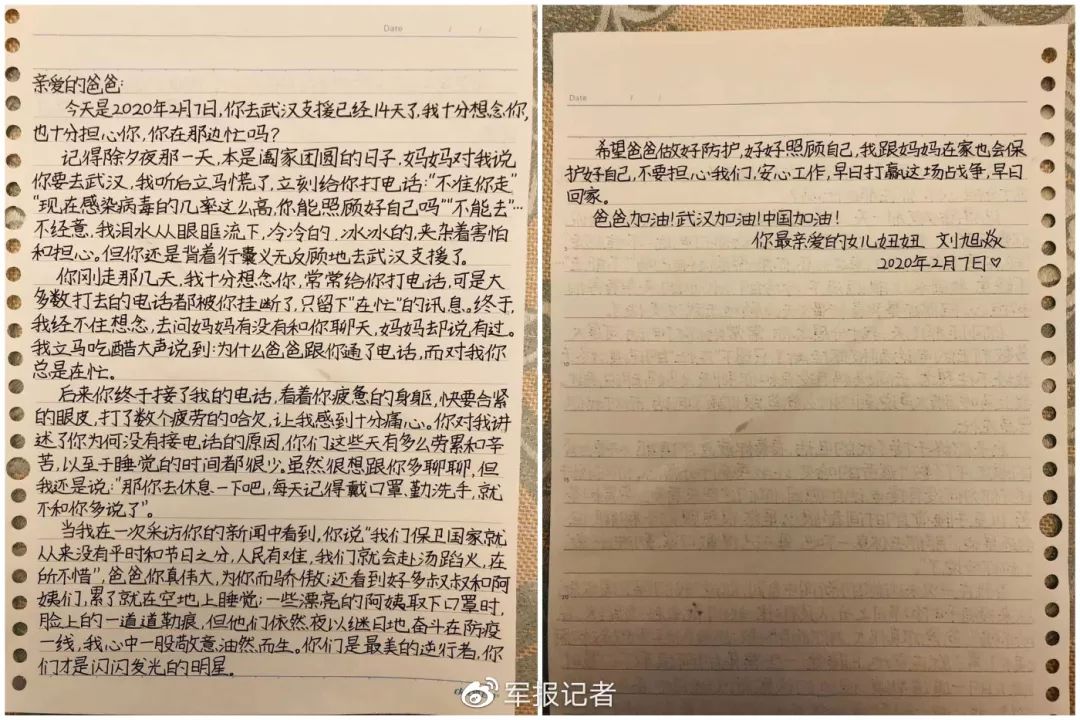 Date / /
亲爱的爸爸:
今天是2020年2月7日,你去武汉支援已经14天了,我十分想念你,
也十分担心你,你在那边忙吗?
记得除夕夜那一天,本是阖家团圆的日子,妈妈对我说
你要去武汉,我听后立马慌了,立刻给你打电话:"不准你走"
"现在感染病毒的几率这么高,你能照顾好自己吗""不能去"…
不经意,我泪水从眼眶流下,冷冷的,冰冰的,夹杂着害怕
和担心。但你还是背着行囊义无反顾地去武汉支援了。
你刚走那几天,我十分想念你,常常给你打电话,可是大
多数打去的电话都被你挂断了,只留下"在忙"的讯息。终于,
我经不住想念,去问妈妈有没有和你聊天,妈妈却说有过。
我立马吃醋大声说到:为什么爸爸跟你通了电话,而对我你
总是在忙。
后来你终于接了我的电话,看着你疲惫的身躯,快要合紧
的眼皮,打了数个疲劳的哈欠,让我感到十分痛心。你对我讲
述了你为何没有接电话的原因,你们这些天有多么劳累和辛
苦,以至于睡觉的时间都很少。虽然很想跟你多聊聊,但
我还是说:"那你去休息一下吧,每天记得戴口罩、勤洗手,就
不和你多说了"。
当我在一次采访你的新闻中看到,你说"我们保卫国家就
从来没有平时和节日之分,人民有难,我们就会赴汤蹈火,在
所不惜",爸爸你真伟大,为你而骄傲;还看到好多叔叔和阿
姨们,累了就在空地上睡觉;一些漂亮的阿姨取下口罩时,
脸上的一道道勒痕,但他们依然夜以继日地奋斗在防疫
一线,我心中一股敬意油然而生。你们是最美的逆行者,你
们才是闪闪发光的明星。
Date / /
希望爸爸做好防护,好好照顾自己,我跟妈妈在家也会保
护好自己,不要担心我们,安心工作,早日打赢这场战争,早日
回家。
爸爸加油!武汉加油!中国加油!
你最亲爱的女儿妞妞 刘旭焱
2020年2月7日♡
5
10
15
20
军报记者